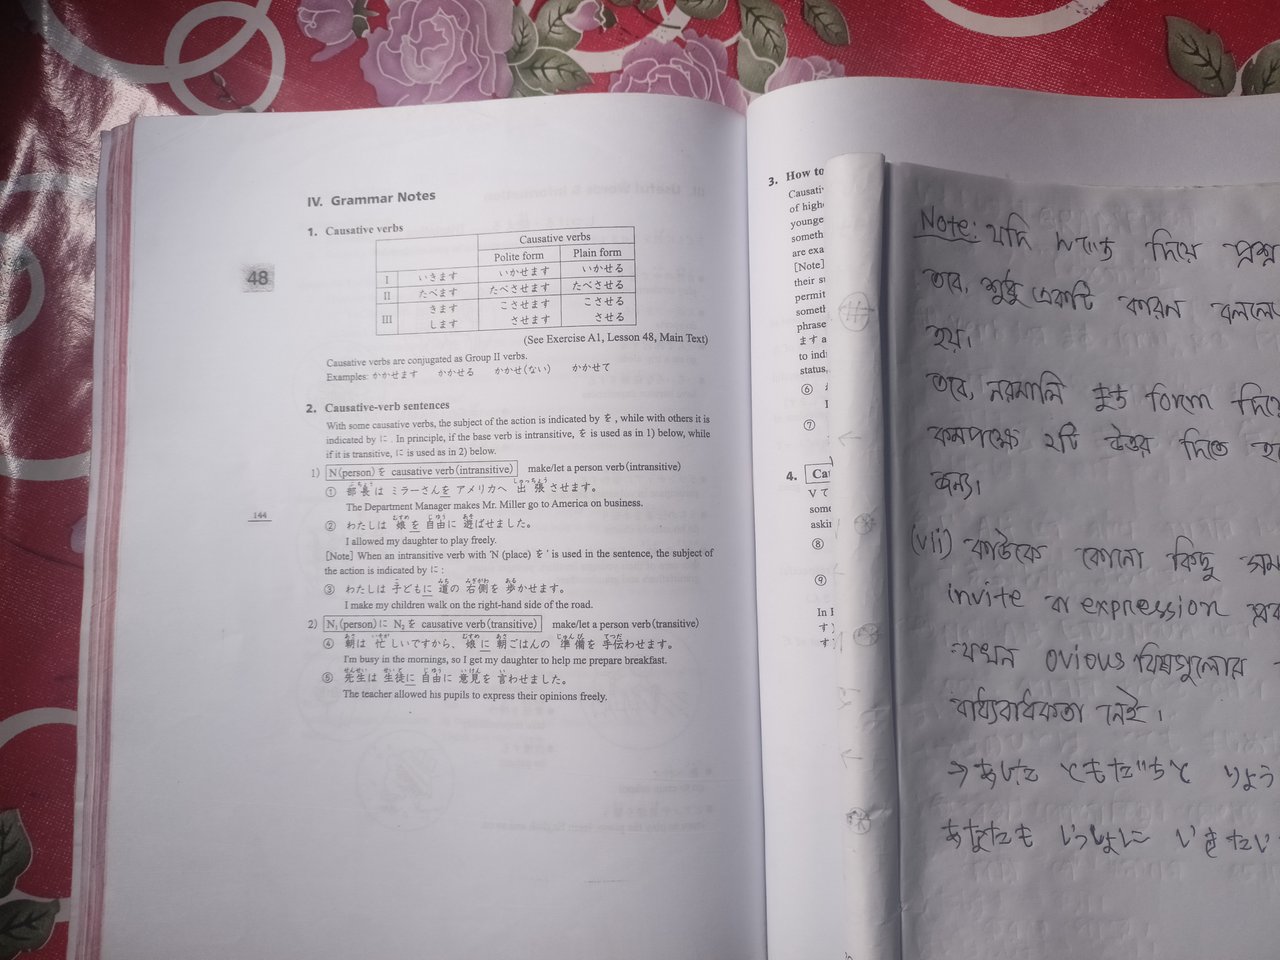 IV. Grammar Notes
1. Causative verbs
Causative verbs
Polite form Plain form
I いきます いかせます いかせる
II たべます たべさせます たべさせる
III きます こさせます こさせる
します させます させる
(See Exercise A1, Lesson 48, Main Text)
Causative verbs are conjugated as Group II verbs.
Examples: かかせます かかせる かかせ(ない) かかせて
2. Causative-verb sentences
With some causative verbs, the subject of the action is indicated by を, while with others it is
indicated by に. In principle, if the base verb is intransitive, を is used as in 1) below, while
if it is transitive, に is used as in 2) below.
1) N(person)を causative verb(intransitive) make/let a person verb(intransitive)
① 部長は ミラーさんを アメリカへ 出張させます。
The Department Manager makes Mr. Miller go to America on business.
② わたしは 娘を 自由に 遊ばせました。
I allowed my daughter to play freely.
[Note] When an intransitive verb with 'N (place) を' is used in the sentence, the subject of
the action is indicated by に:
③ わたしは 子どもに 道の 右側を 歩かせます。
I make my children walk on the right-hand side of the road.
2) N₁(person)に N₂を causative verb(transitive) make/let a person verb(transitive)
④ 朝は 忙しいですから、娘に 朝ごはんの 準備を 手伝わせます。
I'm busy in the mornings, so I get my daughter to help me prepare breakfast.
⑤ 先生は 生徒に 自由に 意見を 言わせました。
The teacher allowed his pupils to express their opinions freely.
48
144
3. How to
Causati
of high
younge
someth
are exa
[Note]
their su
permit
someth
phrase
ます a
to indi
status,
⑥
⑦
4. Cau
Vて
some
askin
⑧
⑨
In I
す)
す)
Note: যদি দিয়ে প্রশ্ন
তবে, শুধু একটি কারন বললে
হয়।
তবে, form দিয়ে
কমপক্ষে ২টি উত্তর দিতে
জন্য।
(vii) কাউকে কোনো কিছু
invite বা expression
যখন ovious
নেই।